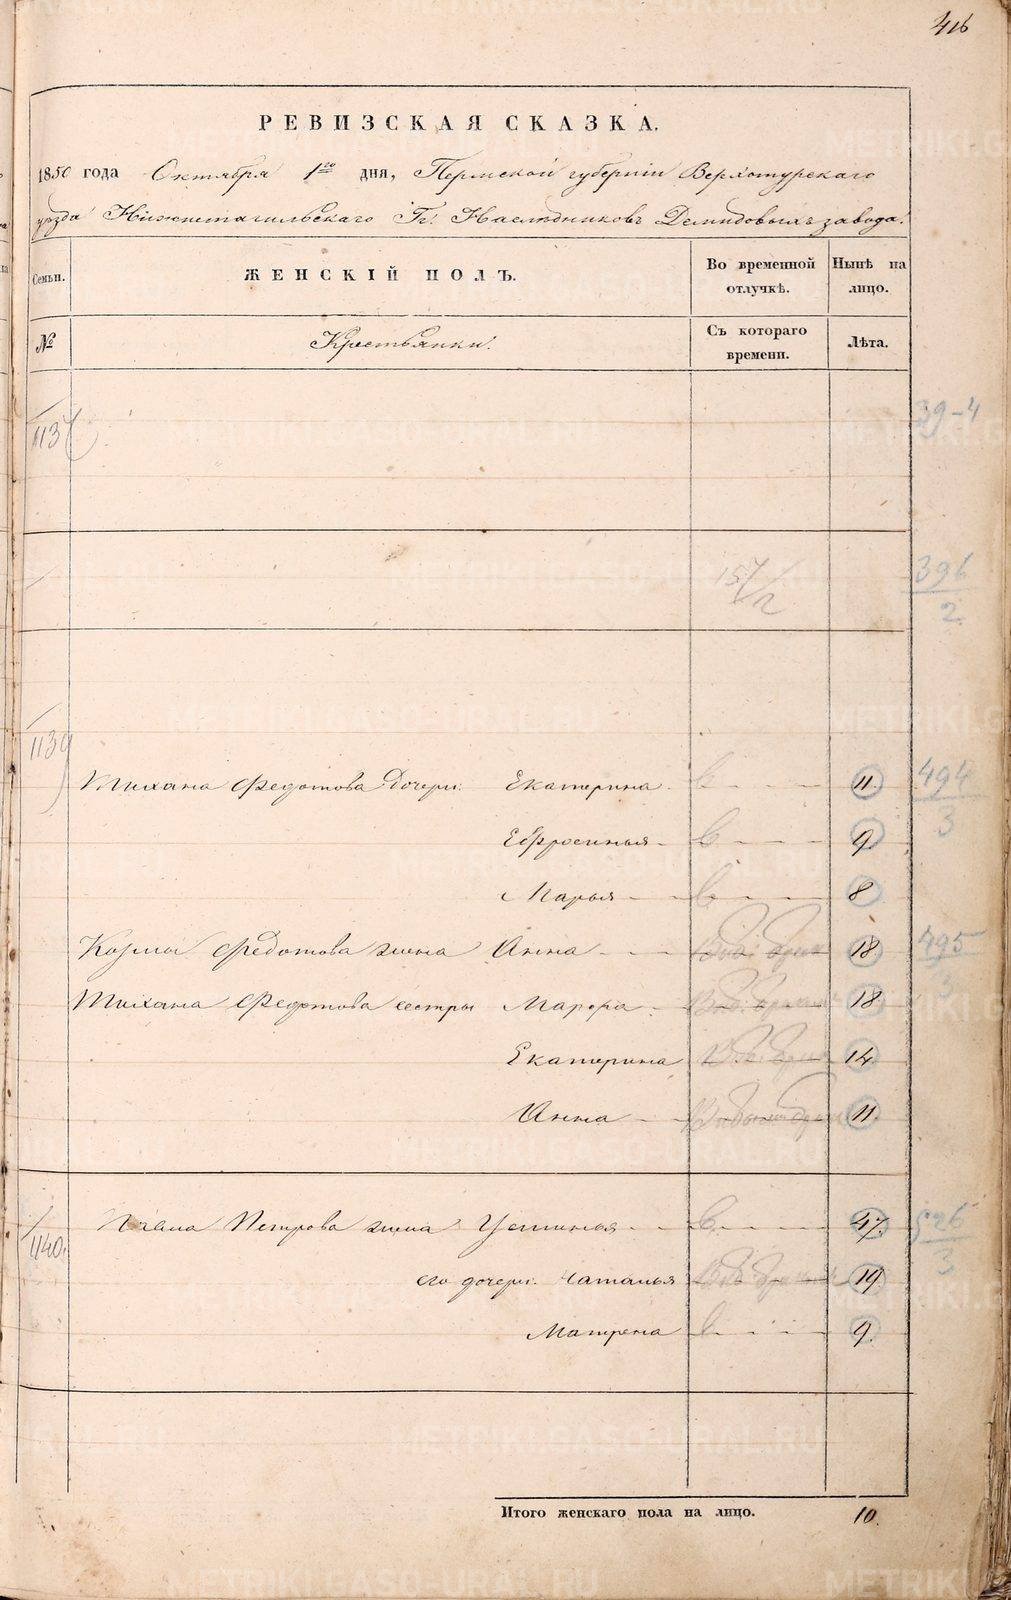 416
РЕВИЗСКАЯ СКАЗКА.
1850 года Октября 1го дня, Пермской губернiи Верхотурскаго
уѣзда Нижнетагильскаго Гг. Наслѣдниковъ Демидовыхъ завода.
Семьи. ЖЕНСКIЙ ПОЛЪ. Во временной отлучкѣ. Нынѣ на лицо.
№ Крестьянки. Съ котораго времени. Лѣта.
1137 39-4
157/2 396/2
1139
Тихана Федотова дочери: Екатерина в 11. 494/3
Ефросинья в 9.
Марья в 8
Козмы Федотова жена Анна 18. 495/3
Тихана Федотова сестры Марфа 18
Екатерина 14.
Анна 11.
1140. Петрова жена Устинья в 47. 526/3
его дочери: Наталья 19.
Матрена в 9.
Итого женскаго пола на лицо. 10.
METRIKI.GASO-URAL.RU